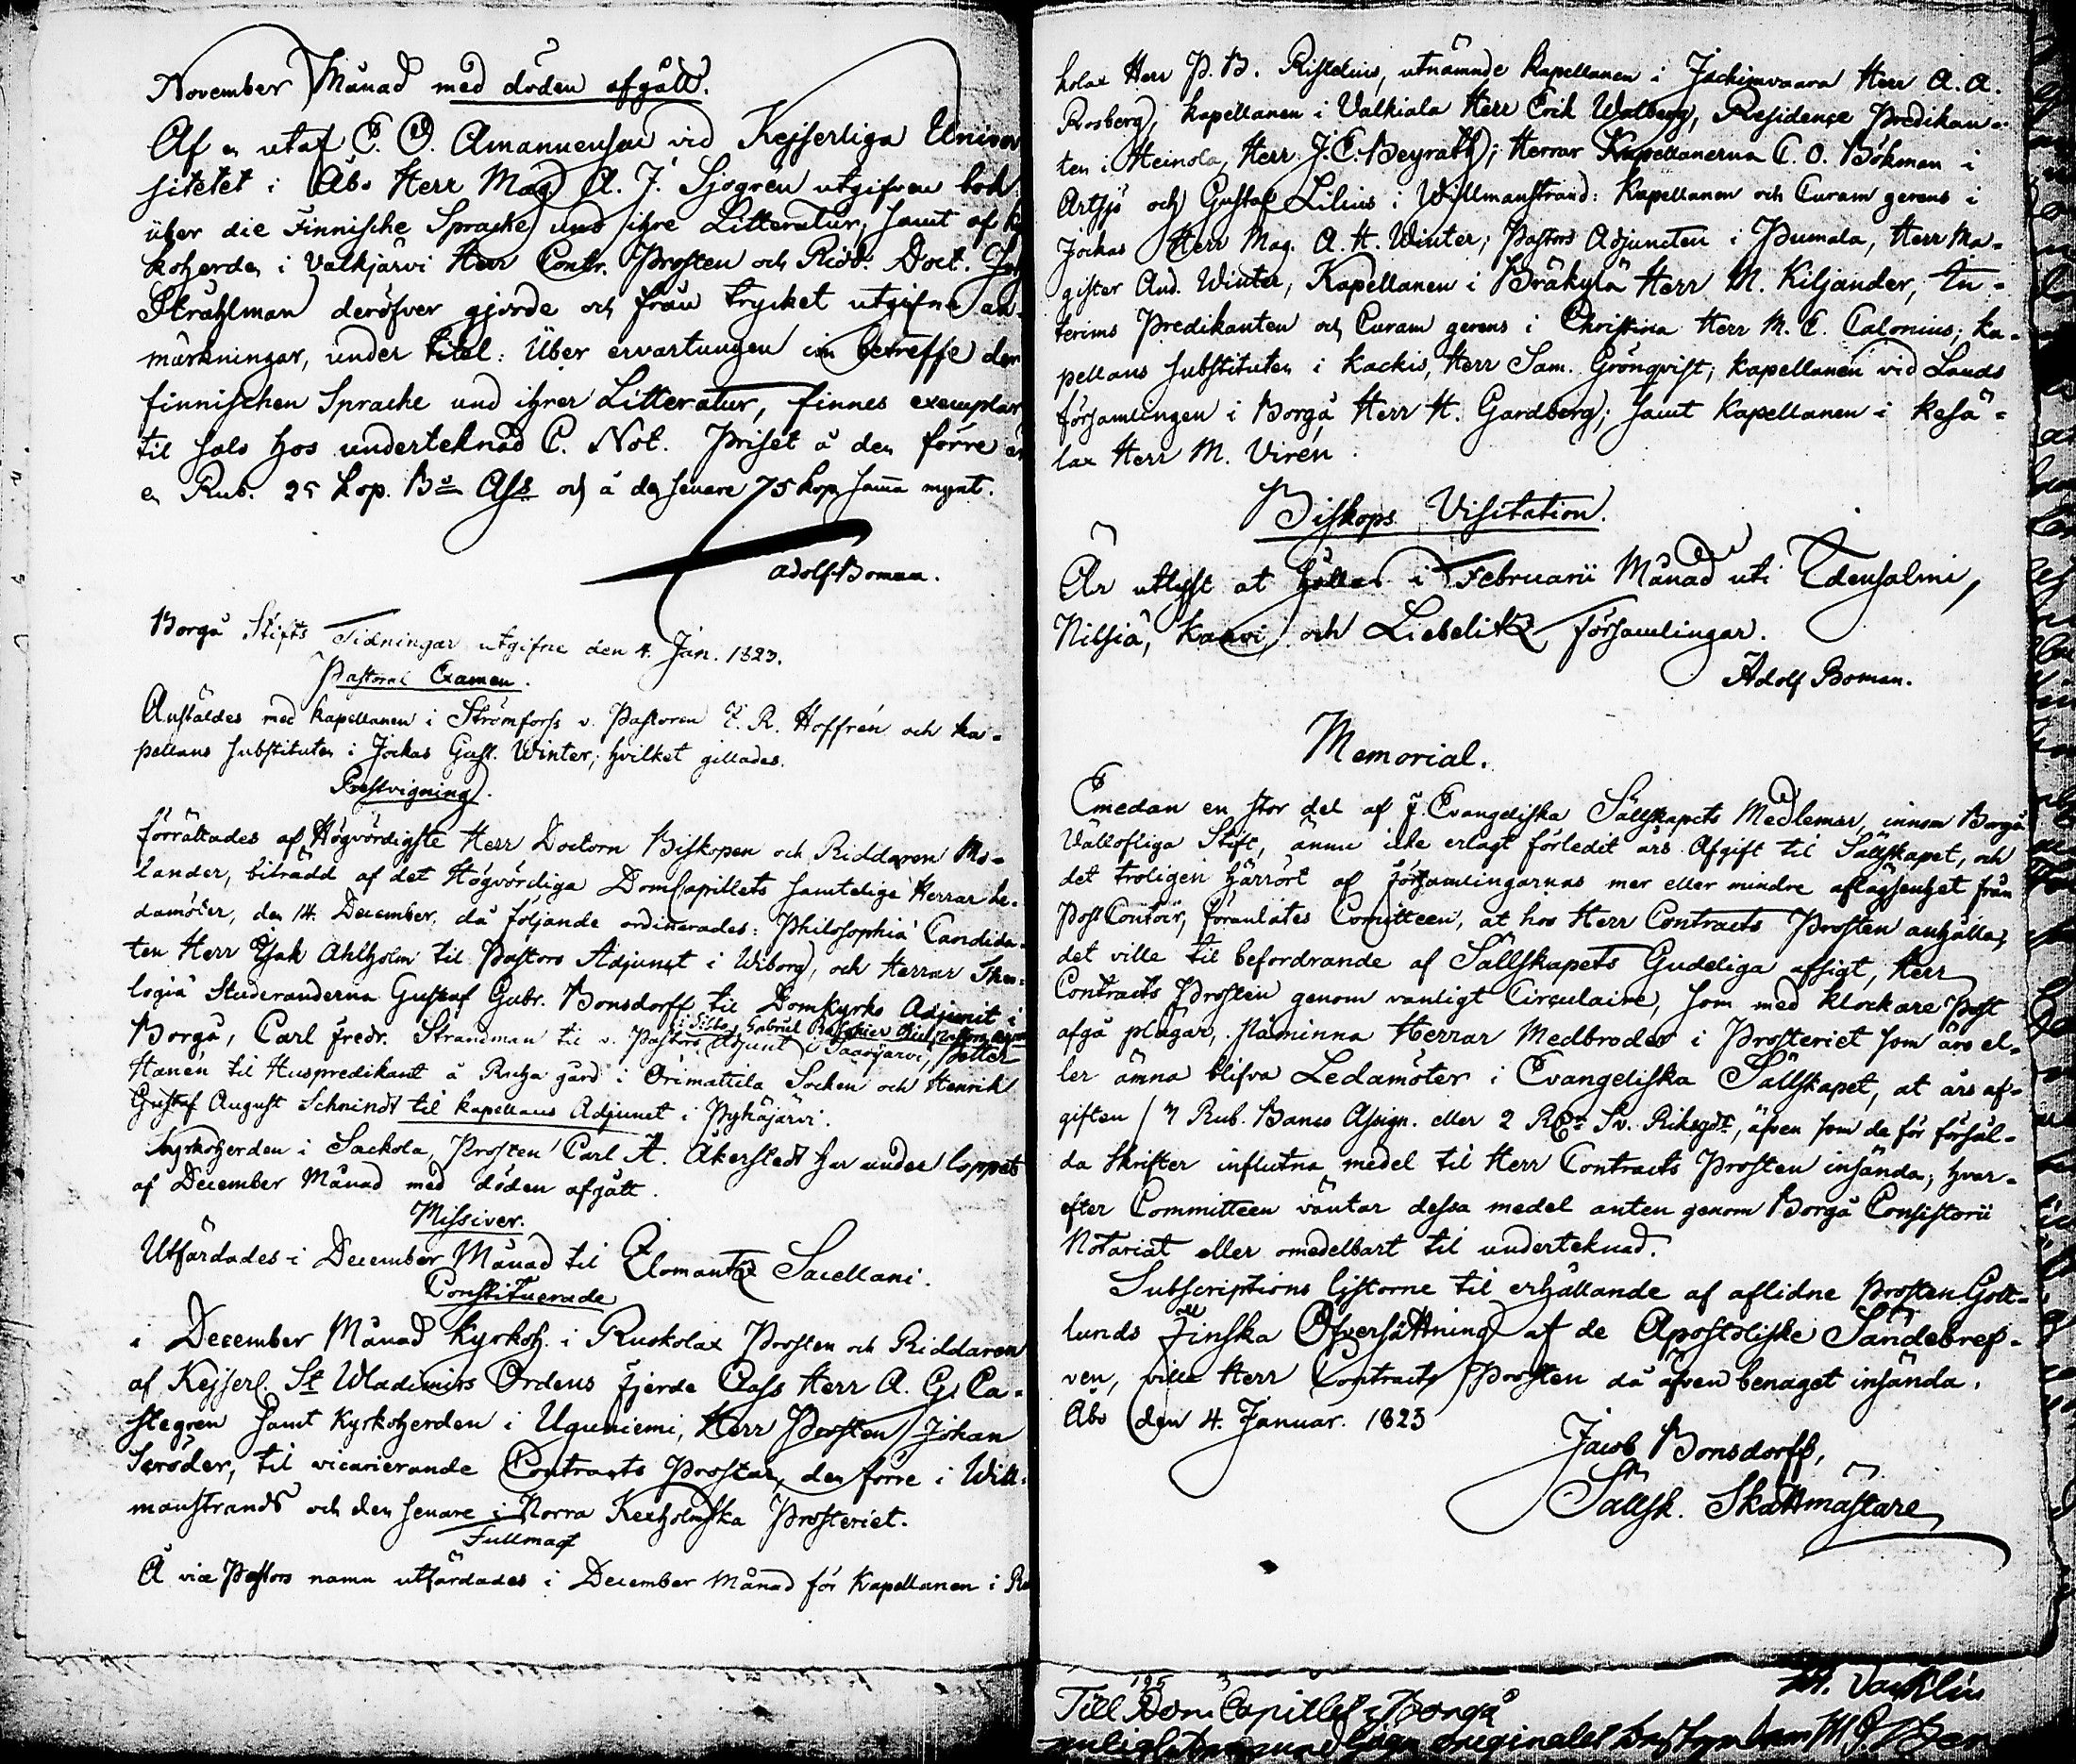 November Månad med döden afgått.
Af en utaf E. O. Amanuensen vid Kejserliga Univer
sitetet i Åbo Herr Mag A. J. Sjögren utgifven bok
über die Finnische Sprache und ihre Litteratur, samt af
koherden i Valkjärvi Herr Contr. Prosten och Ridd. Doct.
Stråhlman deröfver gjorde och från trycket utgifne an-
märkningar, under titel: Über ervartungen im betreffe der
finnischen Sprache und ihrer Litteratur, finnes exemplar
til salo hos undertecknad C. Not. Priset å den förre är
en Rub. 25 kop. Bco Ass och å den senare 75 kop samma mynt.
Adolf Boman.
Borgå Stifts Tidningar utgifne den 4. Jan. 1823.
Pastoral Examen.
Anstäldes med kapellanen i Strömforss v. Pastoren E. R. Hoffrén och ka-
pellans substituten i Jockas Gust. Winter; hvilket gillades.
Prestvigning.
förrättades af Högvördigste Herr Doctorn Biskopen och Riddaren Mo-
lander, biträdd af det Högvördiga DomCapitlets samtelige Herrar Le-
damöter, den 14. December, då följande ordinerades: Philosophiä Candida-
ten Herr Isak Ahlholm til Pastors Adjunct i Wiborg, och Herrar Theo-
logiä Studeranderna Gustaf Gabr. Bonsdorff til Domkyrko Adjunct i
Borgå, Carl Fredr. Strandman til v. Pastors Adjunct i Saarijärvi, Petter
Hanén til Huspredikant å Ruha gård i Orimattila Socken och Henrik
Gustaf August Schmidt til kapellans Adjunct i Pyhäjärvi.
Kyrkoherden i Sackola, Prosten Carl A. Åkerstedt har under loppet
af December Månad med döden afgått.
Missiver.
Utfärdades i December Månad til Ilomantz Sacellani.
Constituerade
i December Månad Kyrkoh. i Ruokolax Prosten och Riddaren
af Kejserl. St Wladimirs Ordens fjerde Class Herr A. G. Ca-
stegren samt Kyrkoherden i Uguniemi, Herr Prosten Johan
Seröder, til vicarierande Contracts Prostar, den förre i Will-
manstrands och den senare i Norra Kexholmska Prosteriet.
Fullmagt
Å vice Pastors namn utfärdades i December Månad för Kapellanen i
kolax Herr P. B. Ristelius, utnämnde kapellanen i Jäckimvaara Herr A. A.
Rosberg, kapellanen i Valkiala Herr Erik Walberg, Residence Predikan-
ten i Heinola, Herr J. C. Beyrath; Herrar Kapellanerna C. O. Bökman i
Artsjö och Gustaf Lilius i Willmanstrand: kapellanen och Curam gerens i
Jockas Herr Mag. A. H. Winter; Pastors Adjuncten i Pumala, Herr Ma-
gister And. Winter, Kapellanen i Bräkylä Herr M. Kiljander, In-
terims Predikanten och Curam gerens i Christina Herr M. C. Calonius; ka-
pellans substituten i Kackis, Herr Sam. Grönqvist; kapellanen vid Lands
församlingen i Borgå Herr H. Gardberg; samt kapellanen i Kesä-
lax Herr M. Virén.
Biskops Visitation.
Är utlyst at hållas i Februarii Månad uti Idensalmi,
Nilsiä, Kaavi, och Liebelitz församlingar.
Adolf Boman.
Memorial.
Emedan en stor del af F. Evangeliska Sällskapets Medlemar innom Borgå
Vällofliga Stift, ännu icke erlagt förledit års Afgift til Sällskapet, och
det troligen härrört af församlingarnas mer eller mindre aflägsenhet från
Post Contoir, föranlåtes Comitteen, at hos Herr Contracts Prosten anhålla,
det ville til befordrande af Sällskapets Gudeliga afsigt, Herr
Contracts Prosten genom vanligt Circulaire, som med klockare Post
afgå plägar, påminna Herrar Medbröder i Prosteriet som äro el-
ler ämna blifva Ledamöter i Evangeliska Sällskapet, at års af-
giften / 7 Rub. Banco Assign. eller 2 Rdr Sv. Riksgdr, äfven som de för försål-
da skrifter influtna medel til Herr Contracts Prosten insända; hvar-
efter Committeen väntar dessa medel anten genom Borgå Consistorii
Notariat eller omedelbart til undertecknad.
Subscriptions Listorne til erhållande af aflidne Prosten Gott-
lunds Finska Öfversättning af de Apostoliske Sändebref-
ven, ville Herr Contracts Prosten då äfven benäget insända.
Åbo den 4. Januar. 1823
Jacob Bonsdorff,
Sällsk. Skattmästare
Till DomCapitlet i Borgå